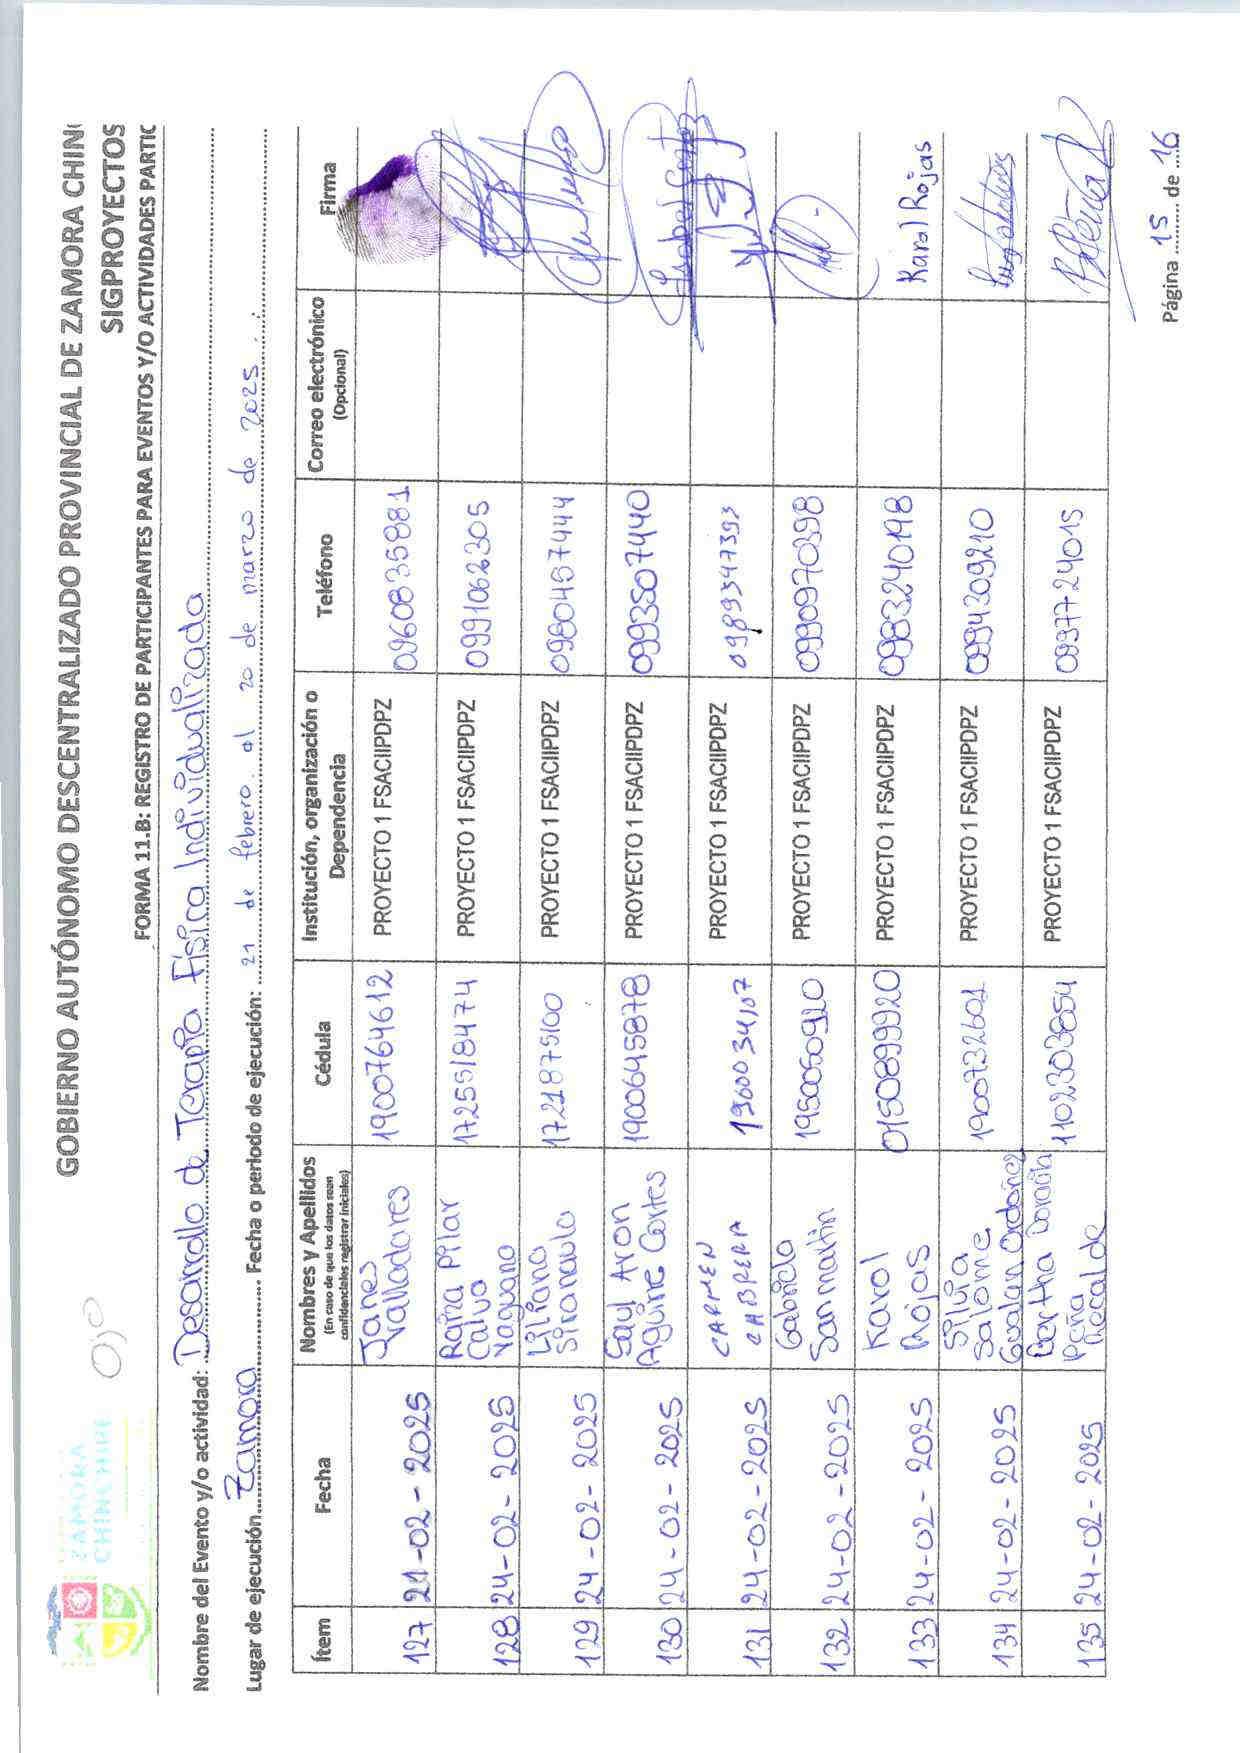 ZAMORA
CHINCHIPE
Ojo
GOBIERNO AUTÓNOMO DESCENTRALIZADO PROVINCIAL DE ZAMORA CHIN
SIGPROYECTOS
FORMA 11.B: REGISTRO DE PARTICIPANTES PARA EVENTOS Y/O ACTIVIDADES PARTIC
Nombre del Evento y/o actividad: Desarrollo de Terapia Física Individualizada
Lugar de ejecución Zamora Fecha o periodo de ejecución: 21 de febrero al 20 de marzo de 2025
Ítem Fecha Nombres y Apellidos (En caso de que los datos sean confidenciales registrar iniciales) Cédula Institución, organización o Dependencia Teléfono Correo electrónico (Opcional) Firma
127 21-02-2025 Janes Valladares 1900764612 PROYECTO 1 FSACIIPDPZ 0960835881
128 24-02-2025 Raiza Pilar Calva Naguano 1725518474 PROYECTO 1 FSACIIPDPZ 0991062305
129 24-02-2025 Liliana Sinanaula 1721875100 PROYECTO 1 FSACIIPDPZ 0980457444
130 24-02-2025 Saul Aron Aguirre Cortes 1900645878 PROYECTO 1 FSACIIPDPZ 0993507440
131 24-02-2025 CARMEN CABRERA 1900034107 PROYECTO 1 FSACIIPDPZ 0989347393
132 24-02-2025 Gabriela Sanmartin 1950050920 PROYECTO 1 FSACIIPDPZ 0990970398
133 24-02-2025 Karol Rojas 0150899920 PROYECTO 1 FSACIIPDPZ 0983240198 Karol Rojas
134 24-02-2025 Silvia Salome Gualan Ordoñez 1900732601 PROYECTO 1 FSACIIPDPZ 0994309210
135 24-02-2025 Bertha Peña Recalde 1102303854 PROYECTO 1 FSACIIPDPZ 0997724015
Página 15 de 16